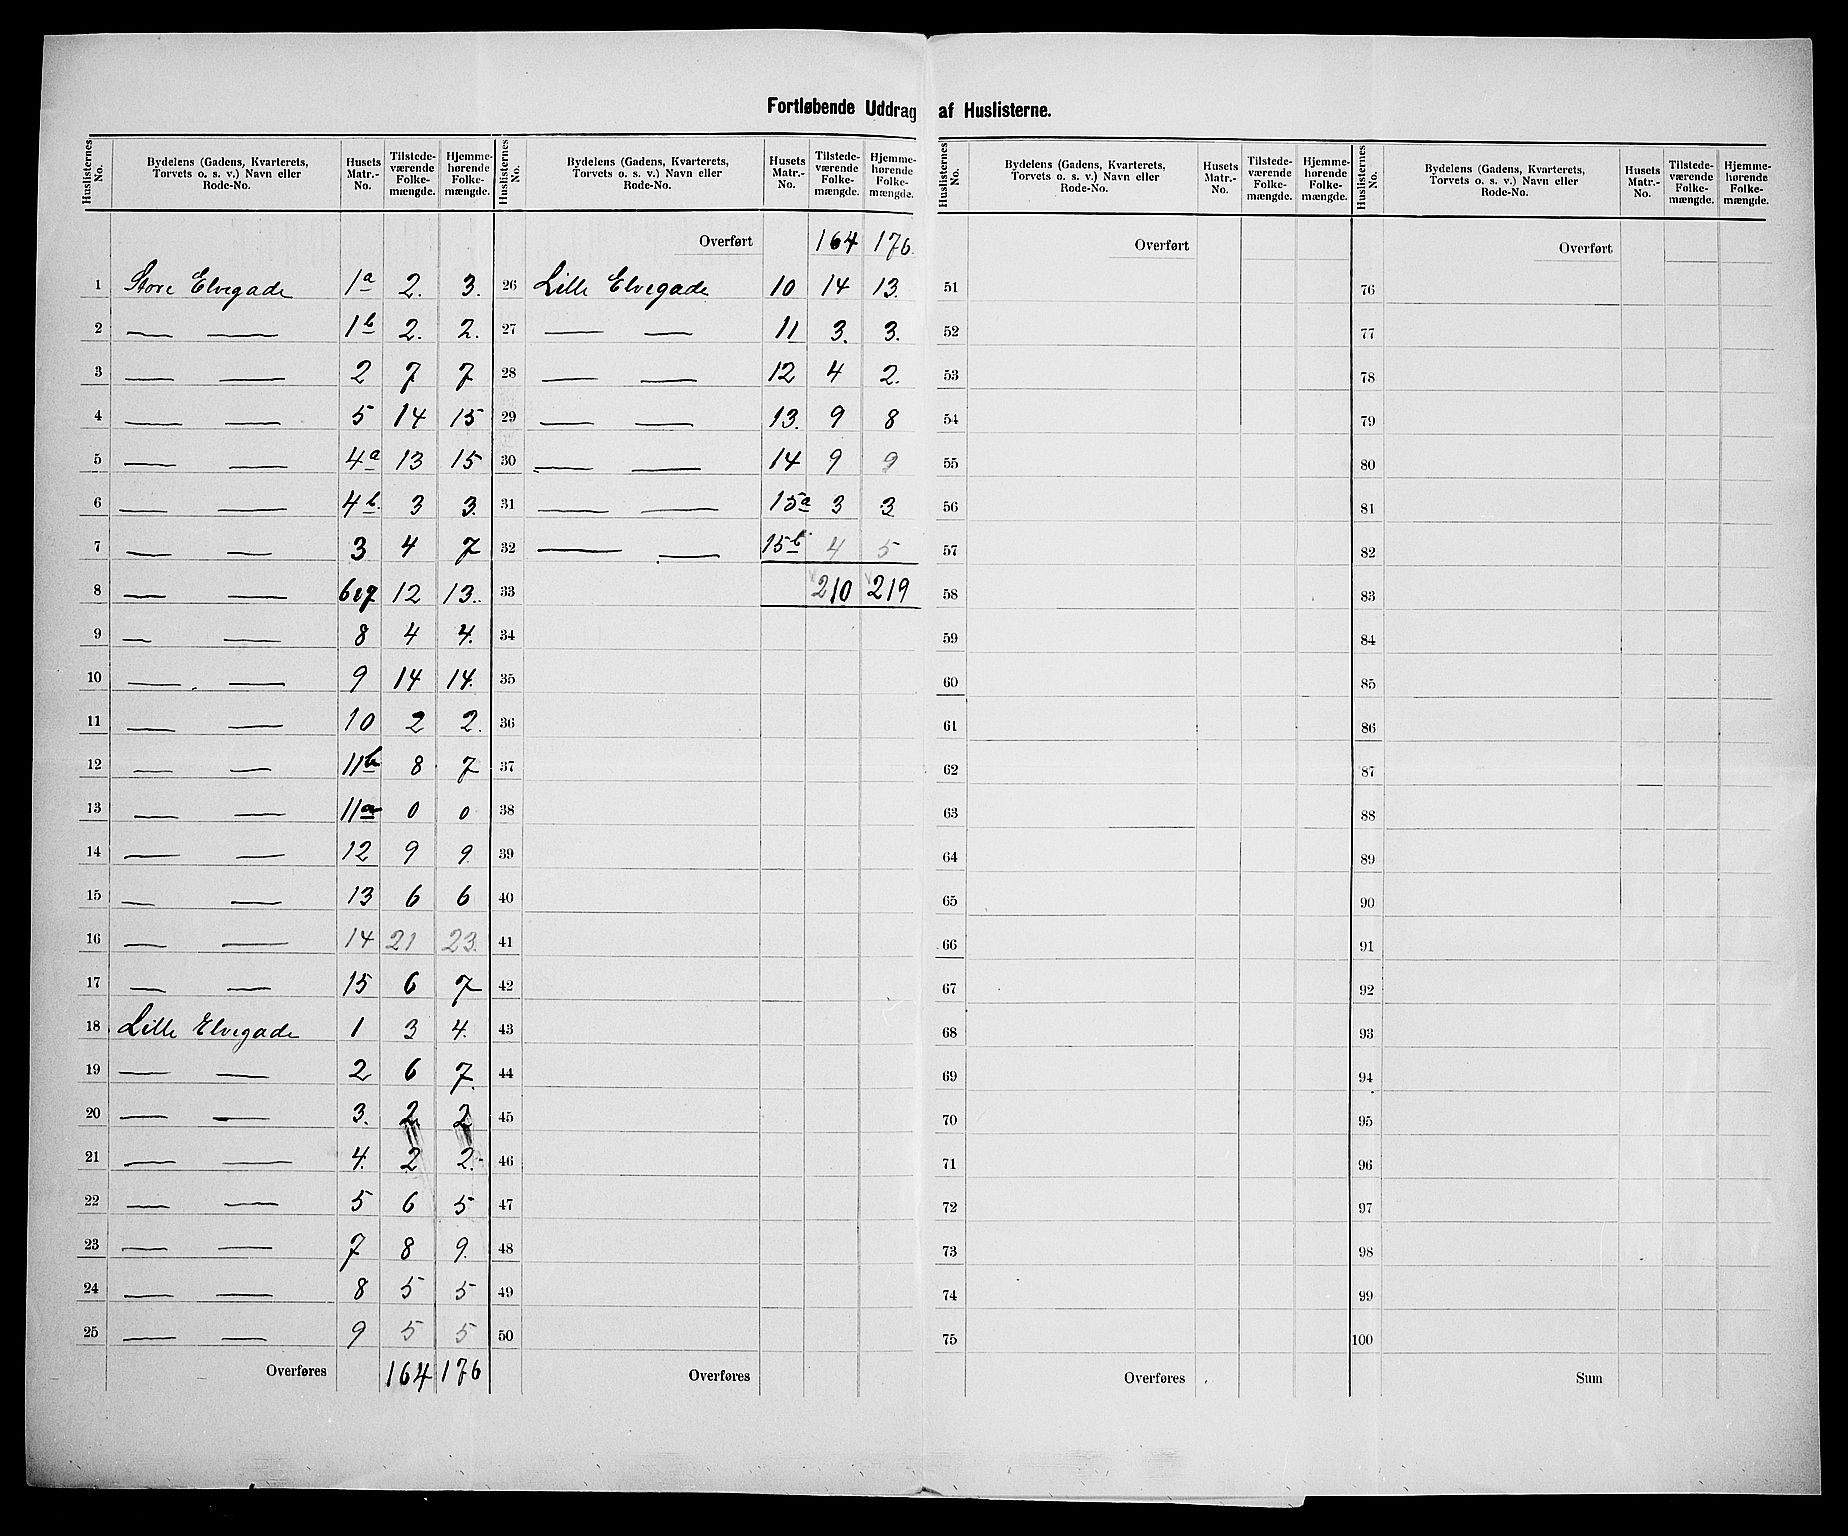 Fortløbende Uddrag af Huslisterne.
Huslisternes No. | Bydelens (Gadens, Kvarterets, Torvets o. s. v.) Navn eller Rode-No. | Husets Matr.-No. | Tilstedeværende Folkemængde. | Hjemmehørende Folkemængde.
1 Store Elvegade 1a 2. 3.
2 — — 1b 2. 2.
3 — — 2 7 7
4 — — 5 14 15
5 — — 4a 13 15
6 — — 4b. 3 3.
7 — — 3 4 7
8 — — 6o7 12 13.
9 — — 8 4 4.
10 — — 9 14 14.
11 — — 10 2 2.
12 — — 11b 8 7
13 — — 11a 0 0
14 — — 12 9 9.
15 — — 13 6 6
16 — — 14 21 23.
17 — — 15 6 7
18 Lille Elvegade 1 3 4.
19 — — 2 6 7.
20 — — 3. 2 2
21 — — 4. 2 2.
22 — — 5 6 5
23 — — 7 8 9.
24 — — 8 5 5
25 — — 9 5 5
Overføres 164 176
Huslisternes No. | Bydelens (Gadens, Kvarterets, Torvets o. s. v.) Navn eller Rode-No. | Husets Matr.-No. | Tilstedeværende Folkemængde. | Hjemmehørende Folkemængde.
Overført 164 176.
26 Lille Elvegade 10 14 13.
27 — — 11 3. 3.
28 — — 12 4 2.
29 — — 13. 9 8
30 — — 14 9 9
31 — — 15a 3 3
32 — — 15b 4 5
33 210 219
34
35
36
37
38
39
40
41
42
43
44
45
46
47
48
49
50
Overføres
Huslisternes No. | Bydelens (Gadens, Kvarterets, Torvets o. s. v.) Navn eller Rode-No. | Husets Matr.-No. | Tilstedeværende Folkemængde. | Hjemmehørende Folkemængde.
Overført
51
52
53
54
55
56
57
58
59
60
61
62
63
64
65
66
67
68
69
70
71
72
73
74
75
Overføres
Huslisternes No. | Bydelens (Gadens, Kvarterets, Torvets o. s. v.) Navn eller Rode-No. | Husets Matr.-No. | Tilstedeværende Folkemængde. | Hjemmehørende Folkemængde.
Overført
76
77
78
79
80
81
82
83
84
85
86
87
88
89
90
91
92
93
94
95
96
97
98
99
100
Sum